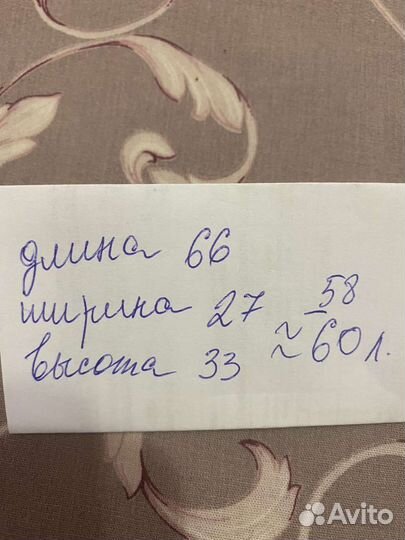 длина 66
ширина 27 58
высота 33 ≈ 60 л.
Avito